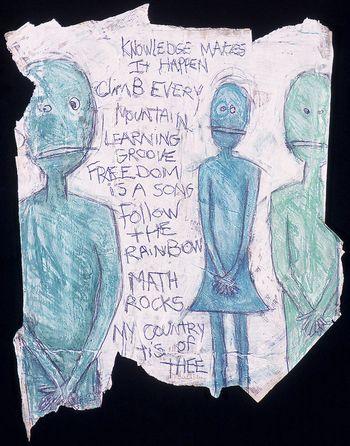 KNOWLEDGE MAKES
IT HAPPEN
CLIMB EVERY
MOUNTAIN
LEARNING
GROOVE
FREEDOM
IS A SONG
FOLLOW
THE
RAINBOW
MATH
ROCKS
MY COUNTRY
TIS OF
THEE